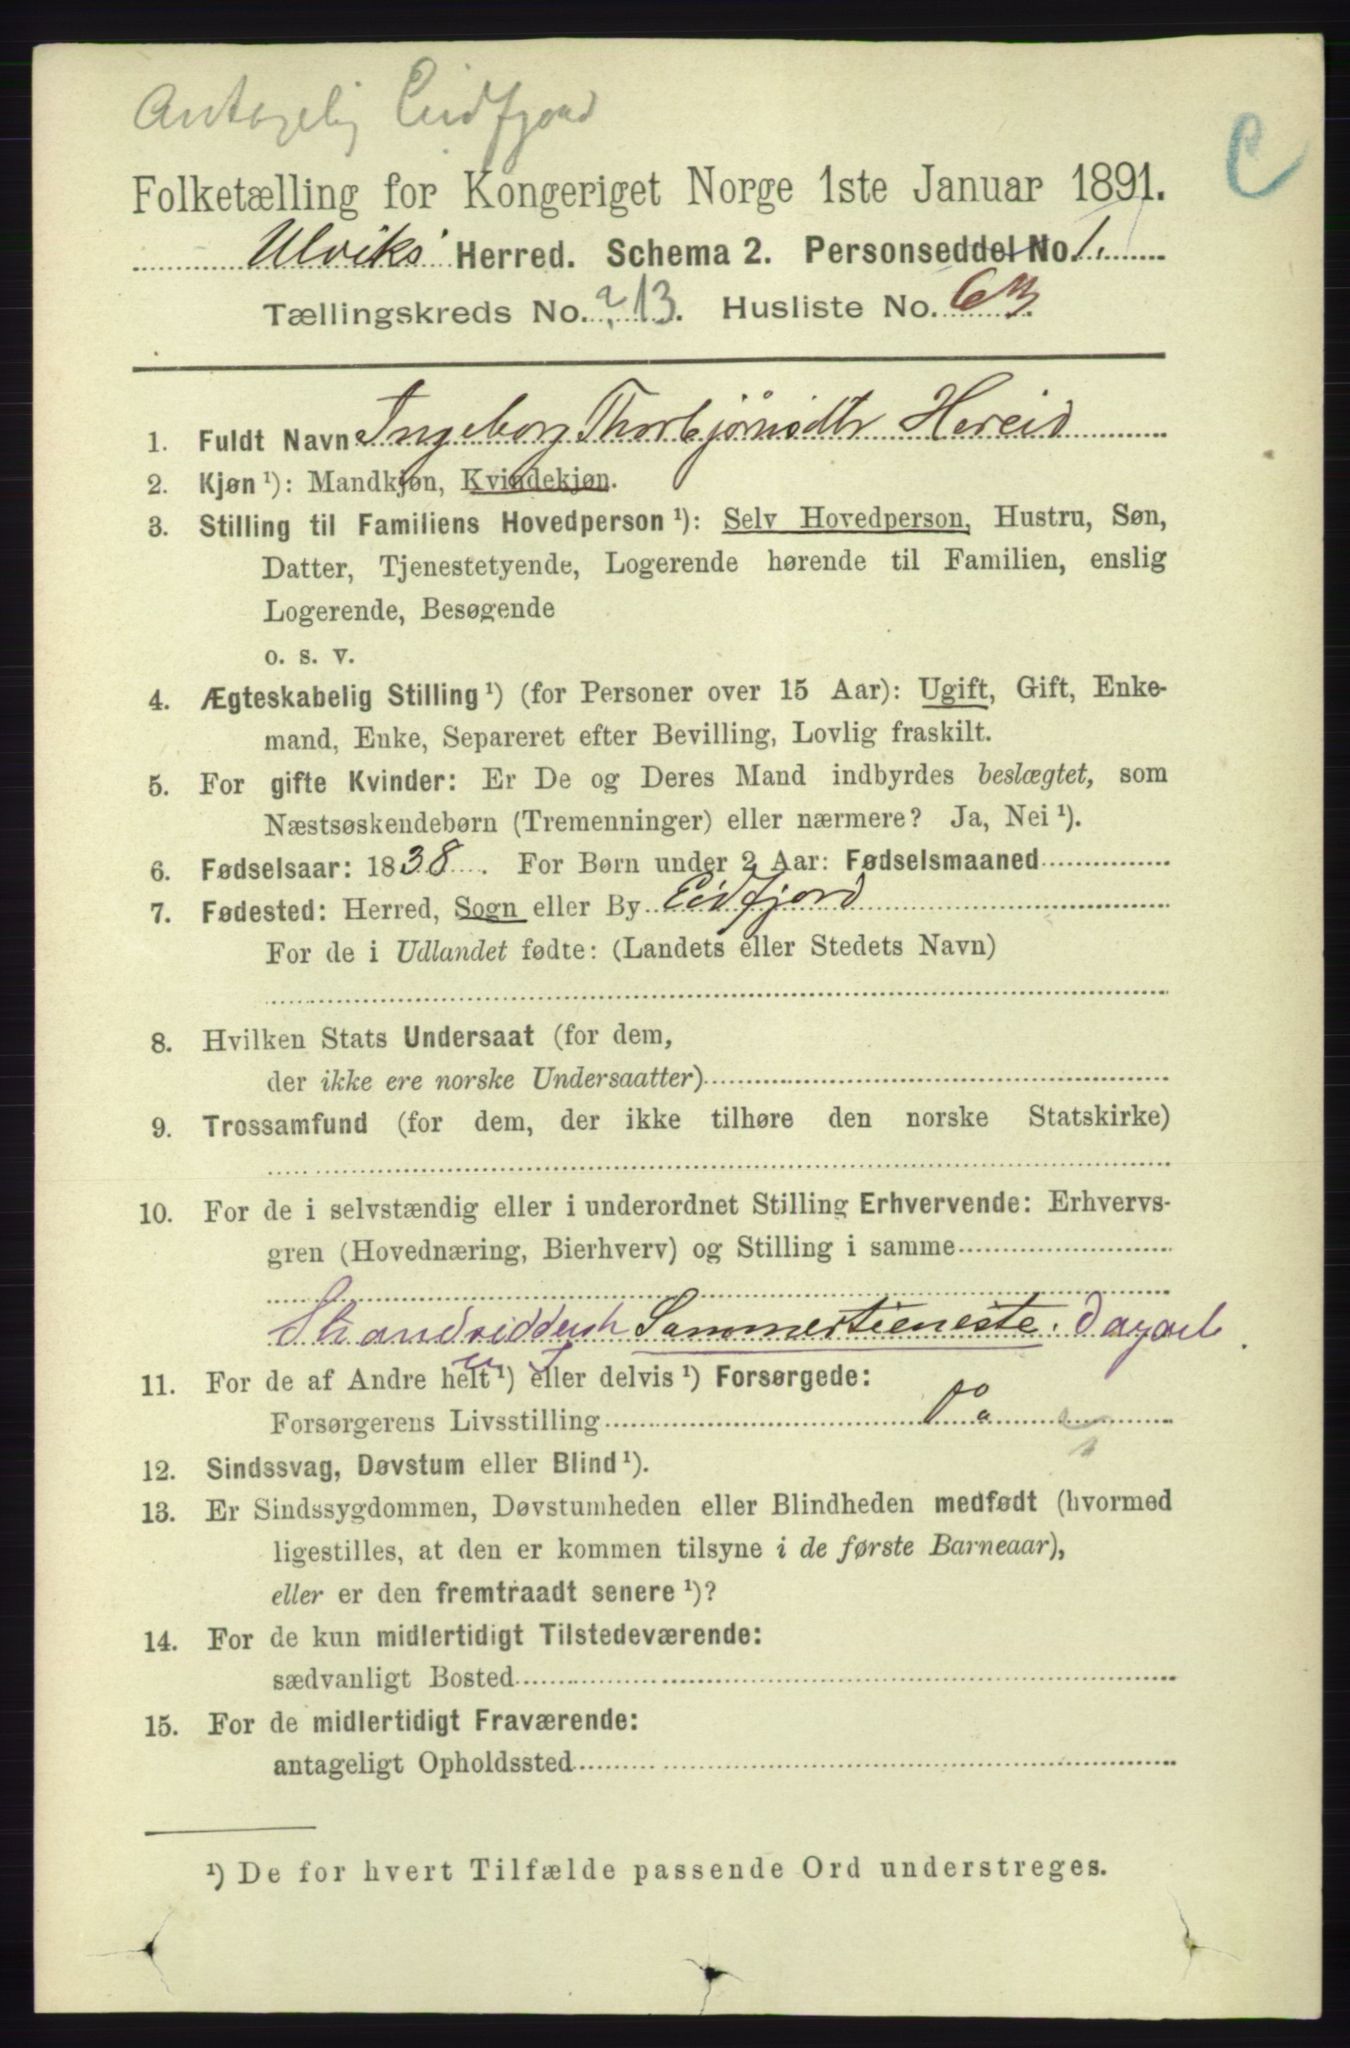 Antagelig Eidfjord
C
Folketælling for Kongeriget Norge 1ste Januar 1891.
Ulviks Herred. Schema 2. Personseddel No. 1.
Tællingskreds No. ? 13. Husliste No.
1. Fuldt Navn Ingeborg Thorbjørnsdtr Hereid
2. Kjøn ¹): Mandkjøn, Kvindekjøn.
3. Stilling til Familiens Hovedperson ¹): Selv Hovedperson, Hustru, Søn,
Datter, Tjenestetyende, Logerende hørende til Familien, enslig
Logerende, Besøgende
o. s. v.
4. Ægteskabelig Stilling ¹) (for Personer over 15 Aar): Ugift, Gift, Enke-
mand, Enke, Separeret efter Bevilling, Lovlig fraskilt.
5. For gifte Kvinder: Er De og Deres Mand indbyrdes beslægtet, som
Næstsøskendebørn (Tremenninger) eller nærmere? Ja, Nei ¹).
6. Fødselsaar: 1838. For Børn under 2 Aar: Fødselsmaaned
7. Fødested: Herred, Sogn eller By Eidfjord
For de i Udlandet fødte: (Landets eller Stedets Navn)
8. Hvilken Stats Undersaat (for dem,
der ikke ere norske Undersaatter)
9. Trossamfund (for dem, der ikke tilhøre den norske Statskirke)
10. For de i selvstændig eller i underordnet Stilling Erhvervende: Erhvervs-
gren (Hovednæring, Bierhverv) og Stilling i samme
Strandsiddersk Sommertieneste. Dagarb.
11. For de af Andre helt ¹) eller delvis ¹) Forsørgede:
Forsørgerens Livsstilling
12. Sindssvag, Døvstum eller Blind ¹).
13. Er Sindssygdommen, Døvstumheden eller Blindheden medfødt (hvormed
ligestilles, at den er kommen tilsyne i de første Barneaar),
eller er den fremtraadt senere ¹)?
14. For de kun midlertidigt Tilstedeværende:
sædvanligt Bosted
15. For de midlertidigt Fraværende:
antageligt Opholdssted
¹) De for hvert Tilfælde passende Ord understreges.